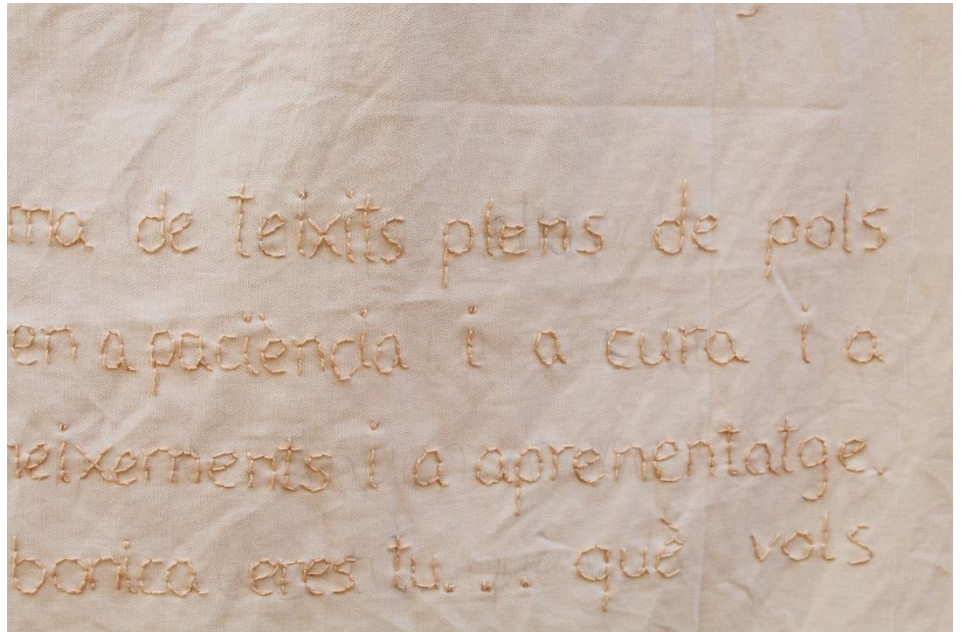 ma de teixits plens de pols
en a paciència i a cura i a
neixements i a aprenentatge.
bonica eres tu.... què vols